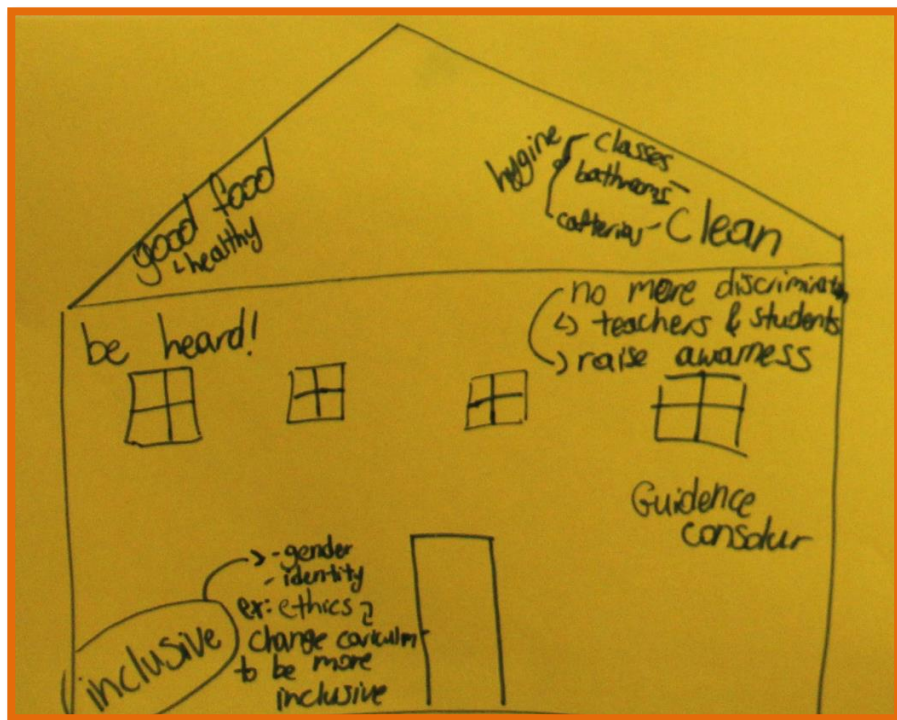 good food
↳ healthy
hygine
classes
bathrooms
cafterias
clean
be heard!
no more discrimination
↳ teachers & students
↳ raise awarness
Guidence
consolur
inclusive
→ - gender
- identity
ex: ethics
change coriculm
to be more
inclusive